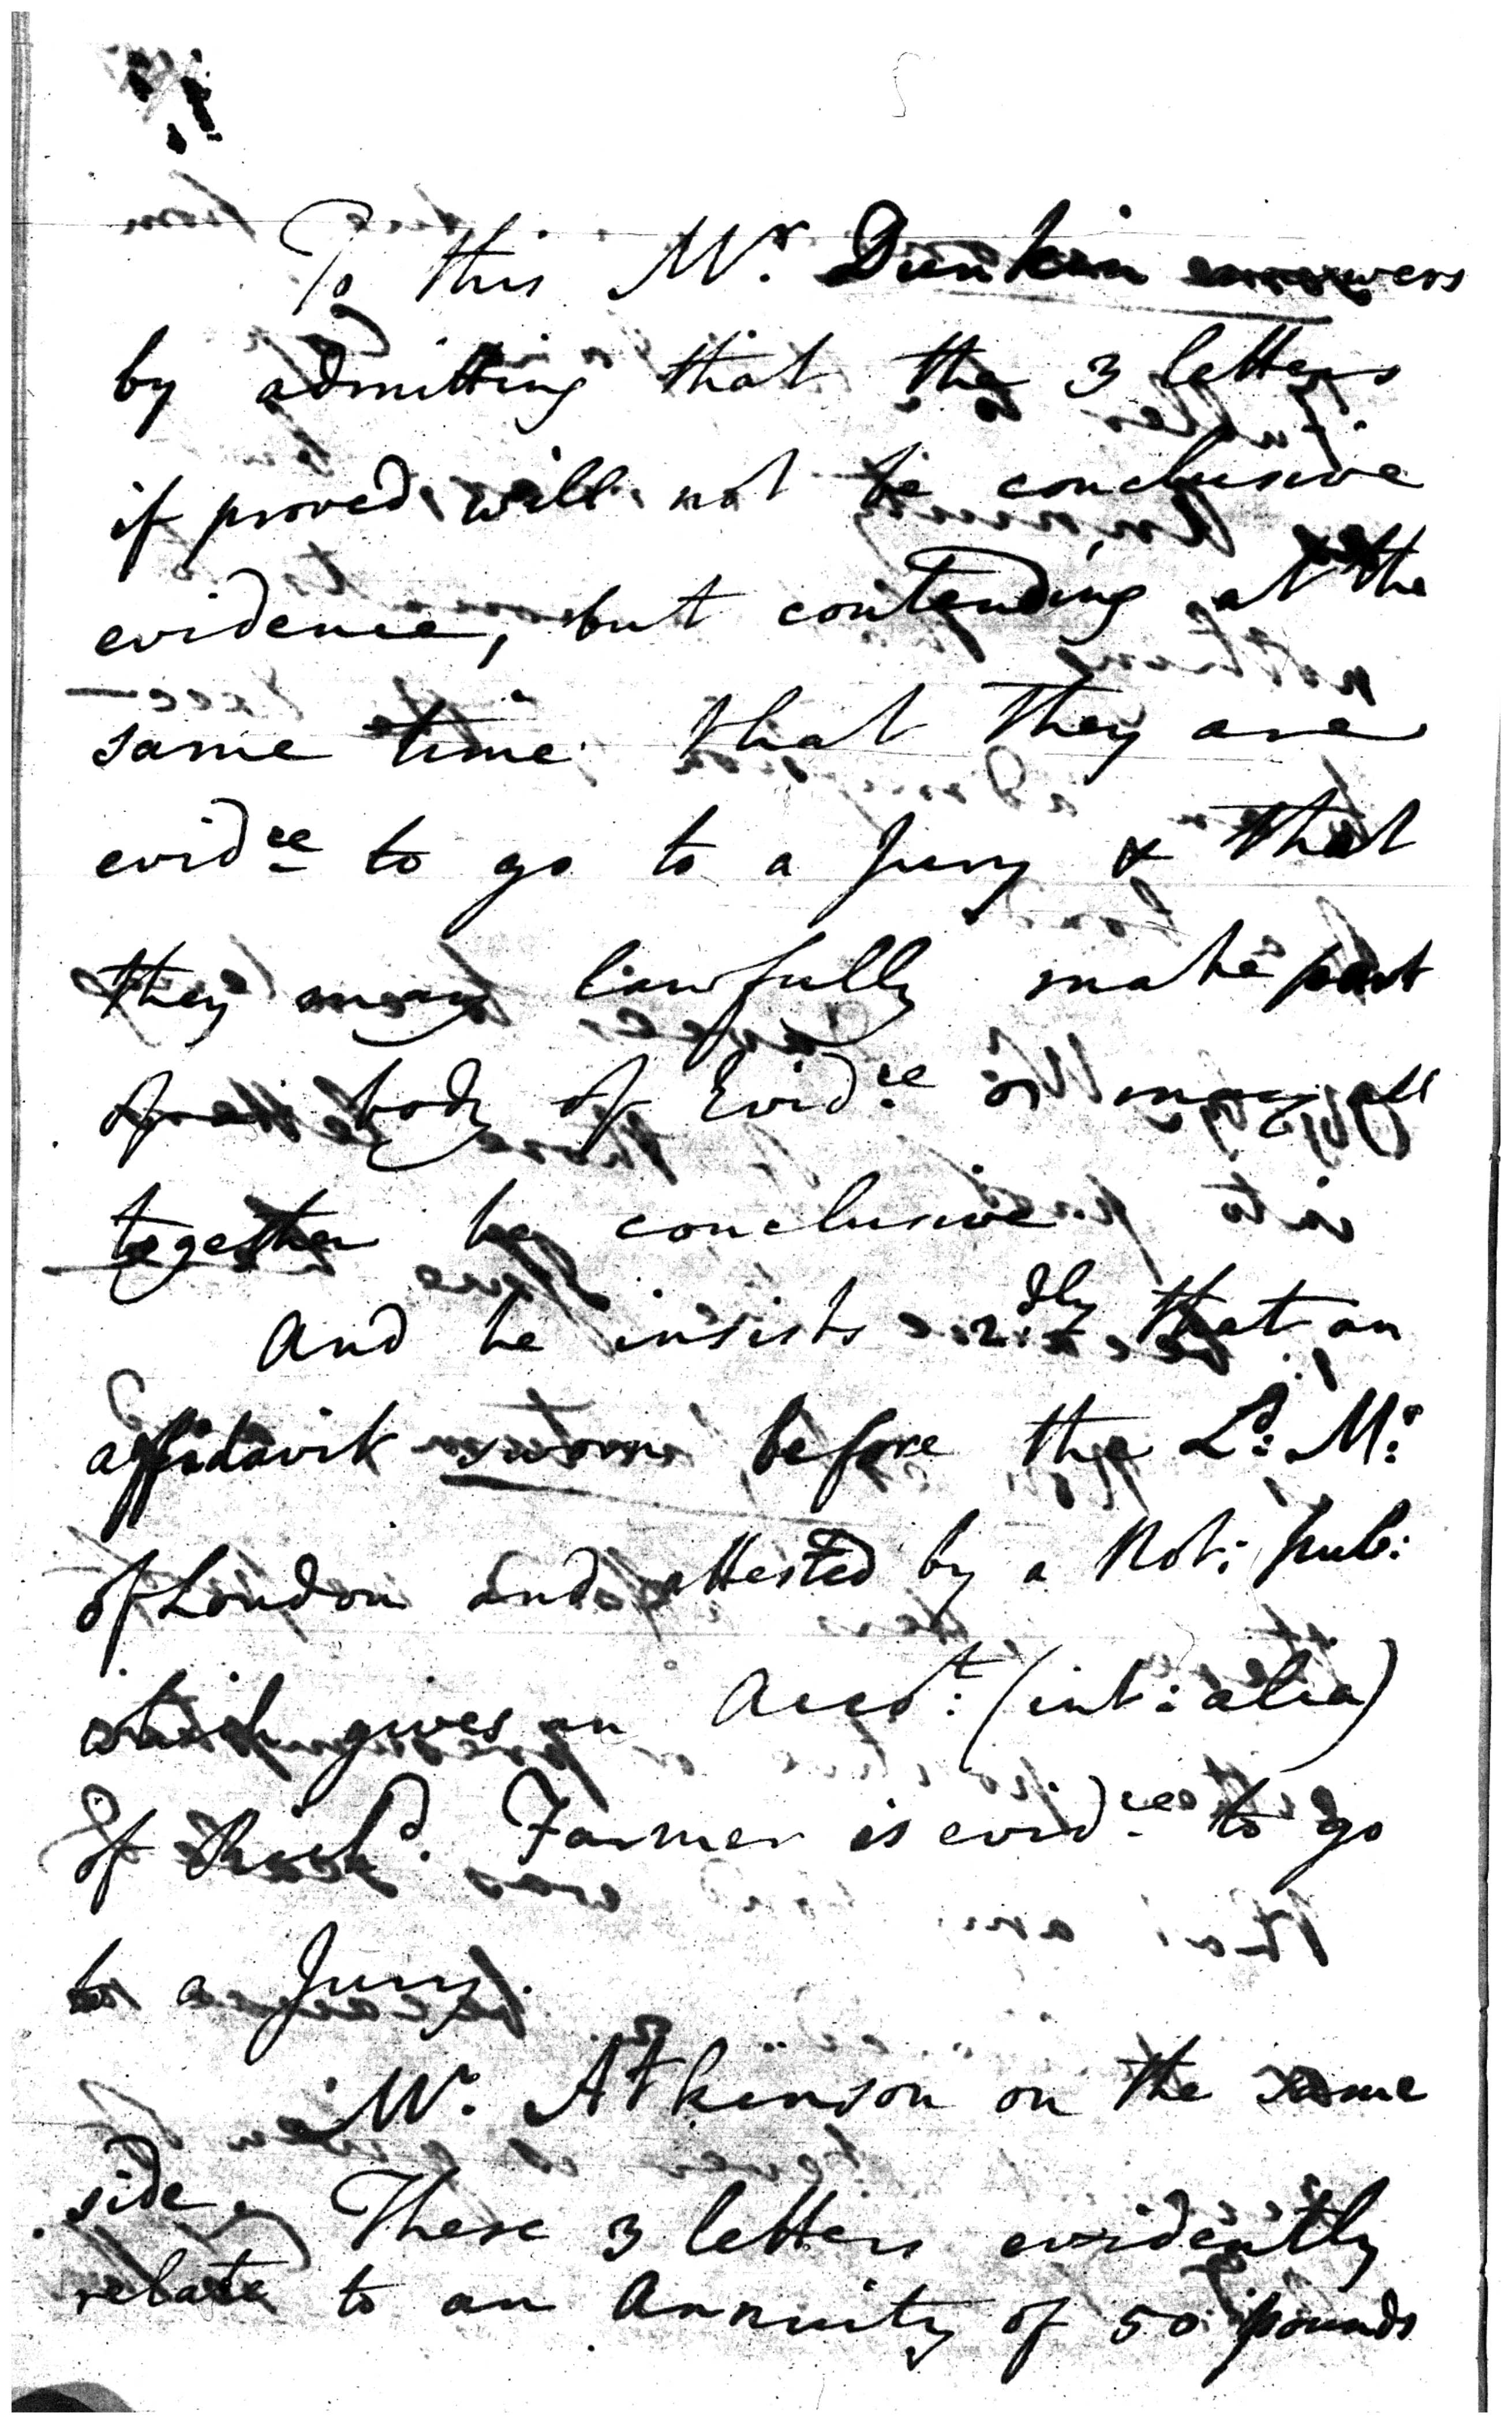 To this Mr. Dunkin answers
by admitting that the 3 letters
if proved, will not be conclusive
evidence, but contending at the
same time that they are
evidce to go to a Jury & that
they may lawfully make part
of a body of Evidce or may all
together be conclusive
And he insists 2dly that an
affidavit sworn before the Ld: Mr:
of London and attested by a Not: pub:
which gives an Accot: (int: alia)
of Richd. Farmer is evidce to go
to a Jury.
Mr. Atkinson on the same
side. These 3 letters evidently
relate to an Annuity of 50 pounds